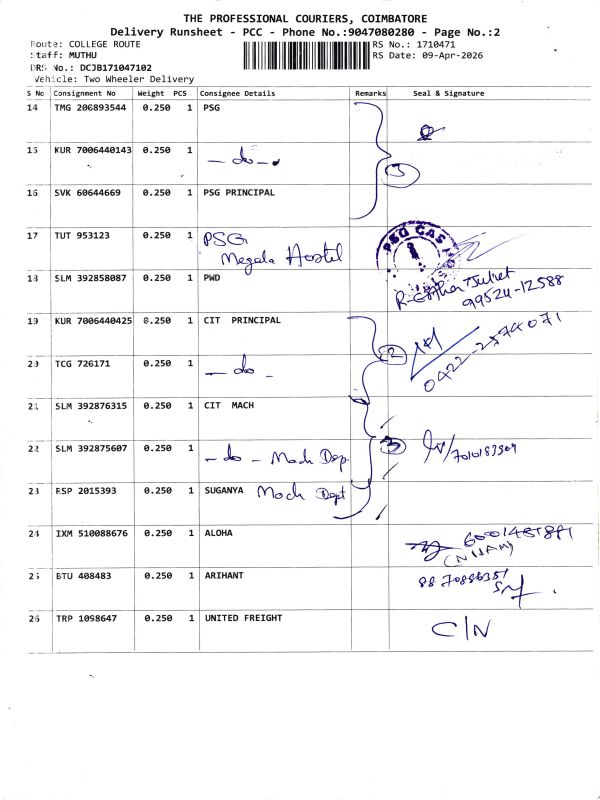 THE PROFESSIONAL COURIERS, COIMBATORE
Delivery Runsheet - PCC - Phone No.:9047080280 - Page No.:2
Route: COLLEGE ROUTE RS No.: 1710471
Staff: MUTHU RS Date: 09-Apr-2026
DRS No.: DCJB171047102
Vehicle: Two Wheeler Delivery
S No Consignment No Weight PCS Consignee Details Remarks Seal & Signature
14 TMG 206893544 0.250 1 PSG
15 KUR 7006440143 0.250 1 - do -
3
16 SVK 60644669 0.250 1 PSG PRINCIPAL
17 TUT 953123 0.250 1 PSG
Megala Hostel
PSG CAS
18 SLM 392858087 0.250 1 PWD
99524-12588
19 KUR 7006440425 0.250 1 CIT PRINCIPAL
2
0422-2574071
20 TCG 726171 0.250 1 - do -
21 SLM 392876315 0.250 1 CIT MACH
22 SLM 392875607 0.250 1 - do - Mach Dep.
3
23 RSP 2015393 0.250 1 SUGANYA Mach Dept
24 IXM 510088676 0.250 1 ALOHA
25 BTU 408483 0.250 1 ARIHANT
26 TRP 1098647 0.250 1 UNITED FREIGHT
C/N